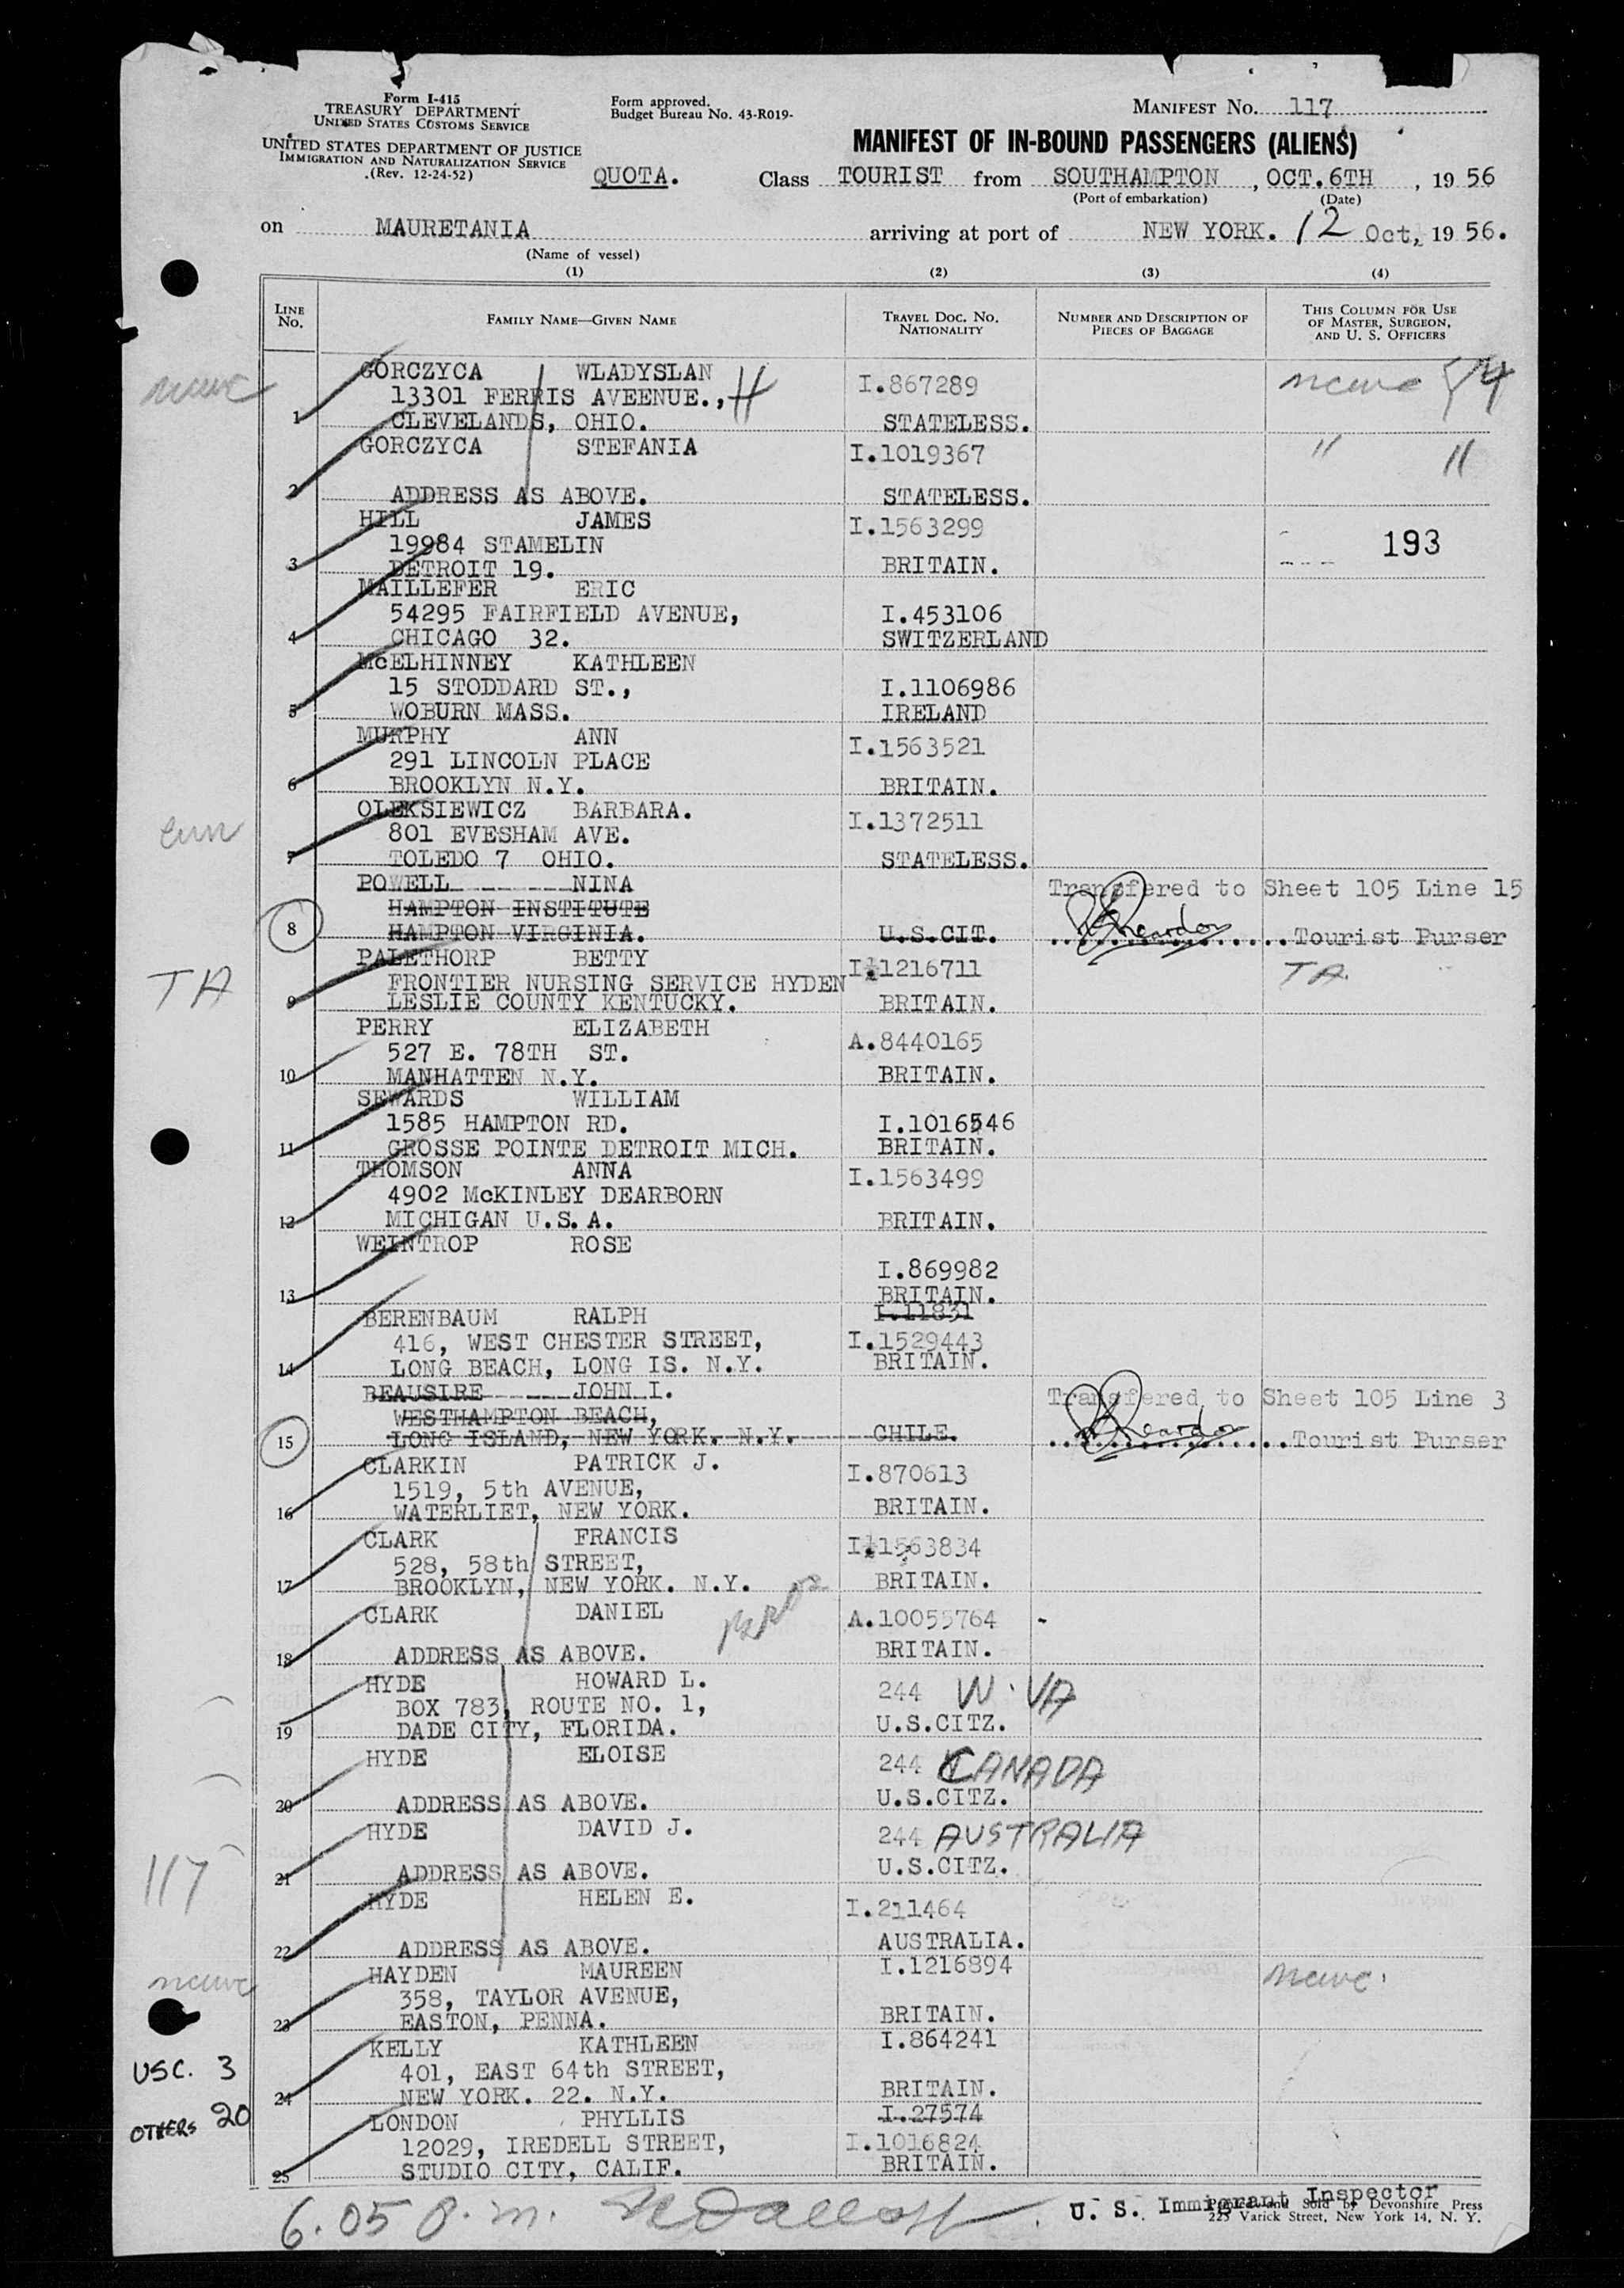 Form I-415
TREASURY DEPARTMENT
UNITED STATES CUSTOMS SERVICE
UNITED STATES DEPARTMENT OF JUSTICE
IMMIGRATION AND NATURALIZATION SERVICE
(Rev. 12-24-52)
Form approved.
Budget Bureau No. 43-R019-
MANIFEST No. 117
MANIFEST OF IN-BOUND PASSENGERS (ALIENS)
QUOTA. Class TOURIST from SOUTHAMPTON , OCT.6TH , 19 56
(Port of embarkation) (Date)
on MAURETANIA arriving at port of NEW YORK. 12 Oct, 19 56.
(Name of vessel)
(1) (2) (3) (4)
LINE No. FAMILY NAME—GIVEN NAME TRAVEL DOC. No. NATIONALITY NUMBER AND DESCRIPTION OF PIECES OF BAGGAGE THIS COLUMN FOR USE OF MASTER, SURGEON, AND U. S. OFFICERS
GORCZYCA WLADYSLAN I.867289
13301 FERRIS AVEENUE.,
1 CLEVELANDS, OHIO. STATELESS.
GORCZYCA STEFANIA I.1019367 " "
2 ADDRESS AS ABOVE. STATELESS.
HILL JAMES I.1563299
19984 STAMELIN 193
3 DETROIT 19. BRITAIN.
MAILLEFER ERIC
54295 FAIRFIELD AVENUE, I.453106
4 CHICAGO 32. SWITZERLAND
McELHINNEY KATHLEEN
15 STODDARD ST., I.1106986
5 WOBURN MASS. IRELAND
MURPHY ANN I.1563521
291 LINCOLN PLACE
6 BROOKLYN N.Y. BRITAIN.
OLEKSIEWICZ BARBARA. I.1372511
801 EVESHAM AVE.
7 TOLEDO 7 OHIO. STATELESS.
POWELL NINA Transfered to Sheet 105 Line 15
HAMPTON INSTITUTE
8 HAMPTON VIRGINIA. U.S.CIT. Reardon Tourist Purser
PALETHORP BETTY I.1216711 TA.
TA FRONTIER NURSING SERVICE HYDEN
9 LESLIE COUNTY KENTUCKY. BRITAIN.
PERRY ELIZABETH A.8440165
527 E. 78TH ST.
10 MANHATTEN N.Y. BRITAIN.
SEWARDS WILLIAM
1585 HAMPTON RD. I.1016546
11 GROSSE POINTE DETROIT MICH. BRITAIN.
THOMSON ANNA I.1563499
4902 McKINLEY DEARBORN
12 MICHIGAN U.S.A. BRITAIN.
WEINTROP ROSE
I.869982
13 BRITAIN.
BERENBAUM RALPH I.11831
416, WEST CHESTER STREET, I.1529443
14 LONG BEACH, LONG IS. N.Y. BRITAIN.
BEAUSIRE JOHN I. Transfered to Sheet 105 Line 3
WESTHAMPTON BEACH,
15 LONG ISLAND, NEW YORK. N.Y. CHILE. Reardon Tourist Purser
CLARKIN PATRICK J. I.870613
1519, 5th AVENUE,
16 WATERLIET, NEW YORK. BRITAIN.
CLARK FRANCIS I.1563834
528, 58th STREET,
17 BROOKLYN, NEW YORK. N.Y. BRITAIN.
CLARK DANIEL A.10055764 -
18 ADDRESS AS ABOVE. BRITAIN.
HYDE HOWARD L. 244 W. VA
BOX 783, ROUTE NO. 1,
19 DADE CITY, FLORIDA. U.S.CITZ.
HYDE ELOISE 244 CANADA
20 ADDRESS AS ABOVE. U.S.CITZ.
HYDE DAVID J. 244 AUSTRALIA
117 21 ADDRESS AS ABOVE. U.S.CITZ.
HYDE HELEN E. I.211464
22 ADDRESS AS ABOVE. AUSTRALIA.
HAYDEN MAUREEN I.1216894
358, TAYLOR AVENUE,
23 EASTON, PENNA. BRITAIN.
KELLY KATHLEEN I.864241
USC. 3 401, EAST 64th STREET,
24 NEW YORK. 22. N.Y. BRITAIN.
OTHERS 20 LONDON PHYLLIS I.27574
12029, IREDELL STREET, I.1016824
25 STUDIO CITY, CALIF. BRITAIN.
6.05 P.m. U. S. Immigrant Inspector
Printed and Sold by Devonshire Press
225 Varick Street, New York 14, N. Y.